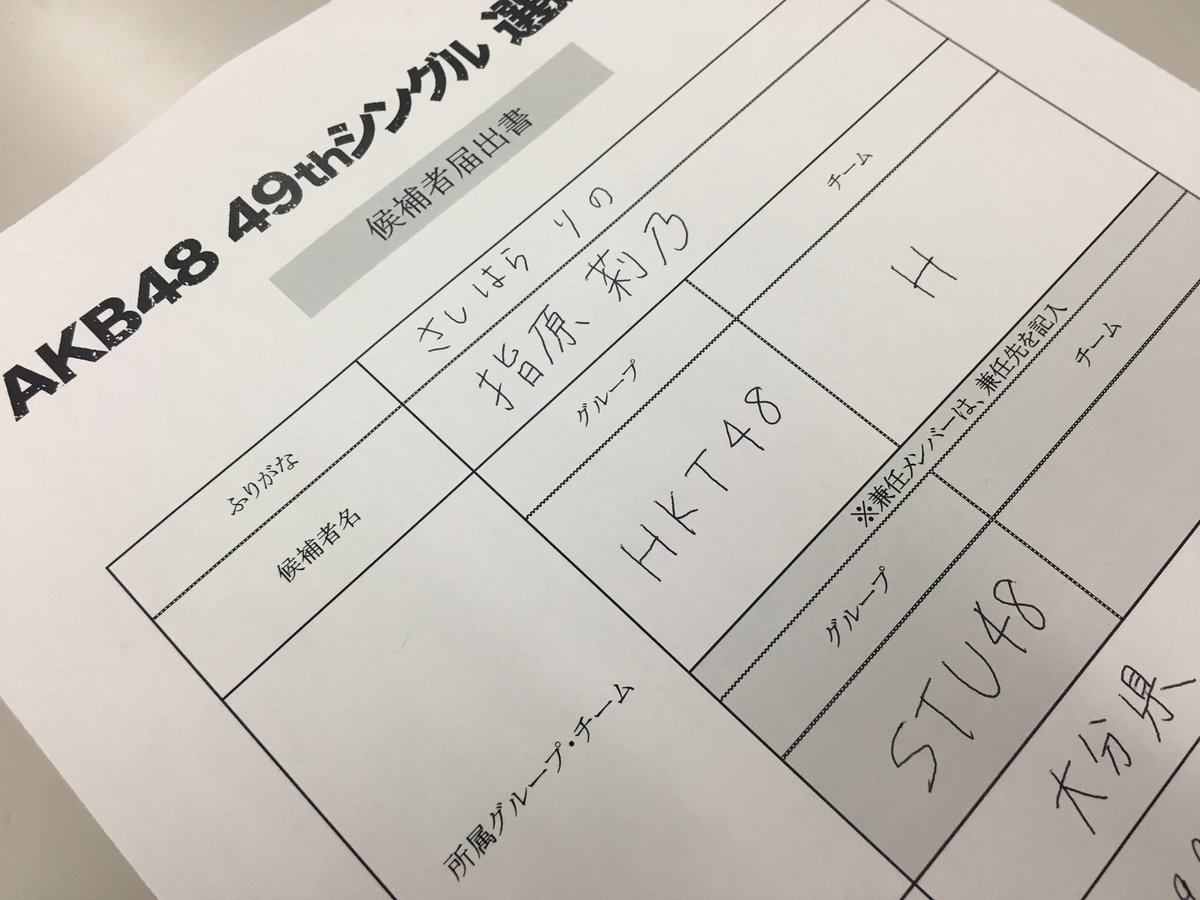 AKB48 49thシングル 選
候補者届出書
ふりがな さしはら りの
候補者名 指原 莉乃
所属グループ・チーム
グループ チーム
HKT48 H
※兼任メンバーは、兼任先を記入
グループ チーム
STU48
大分県